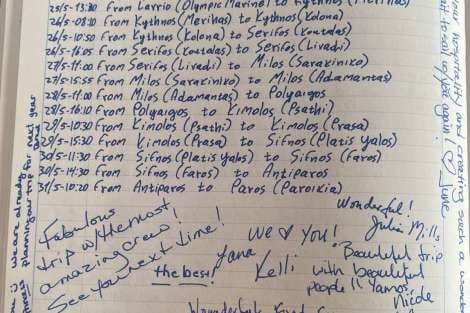 25/5-13:30 From Lavrio (Olympic Marine) to Kythnos (Merihas)
26/5-08:10 From Kythnos (Merihas) to Kythnos (Kolona)
26/5-10:50 From Kythnos (Kolona) to Serifos (Koutalas)
26/5-16:05 From Serifos (Koutalas) to Serifos (Livadi)
27/5-11:00 From Serifos (Livadi) to Milos (Sarakiniko)
27/5-15:55 From Milos (Sarakiniko) to Milos (Adamantas)
28/5-11:00 From Milos (Adamantas) to Polyaigos
28/5-16:10 From Polyaigos to Kimolos (Psathi)
29/5-10:30 From Kimolos (Psathi) to Kimolos (Prasa)
29/5-15:30 From Kimolos (Prasa) to Sifnos (Platis Yalos)
30/5-11:30 From Sifnos (Platis Yalos) to Sifnos (Faros)
30/5-14:30 From Sifnos (Faros) to Antiparos
31/5-10:20 From Antiparos to Paros (Paroikia)
we are already
planning our trip for next year
your hospitality and creating such a wonder
to sail
again!
Love
Fabulous
trip w/the most
amazing crew!
See you next time!
the best!
Yana
we ♡ you!
Kelli
Wonderful!
Julia
Beautiful trip
with beautiful
people!!
Wonderful